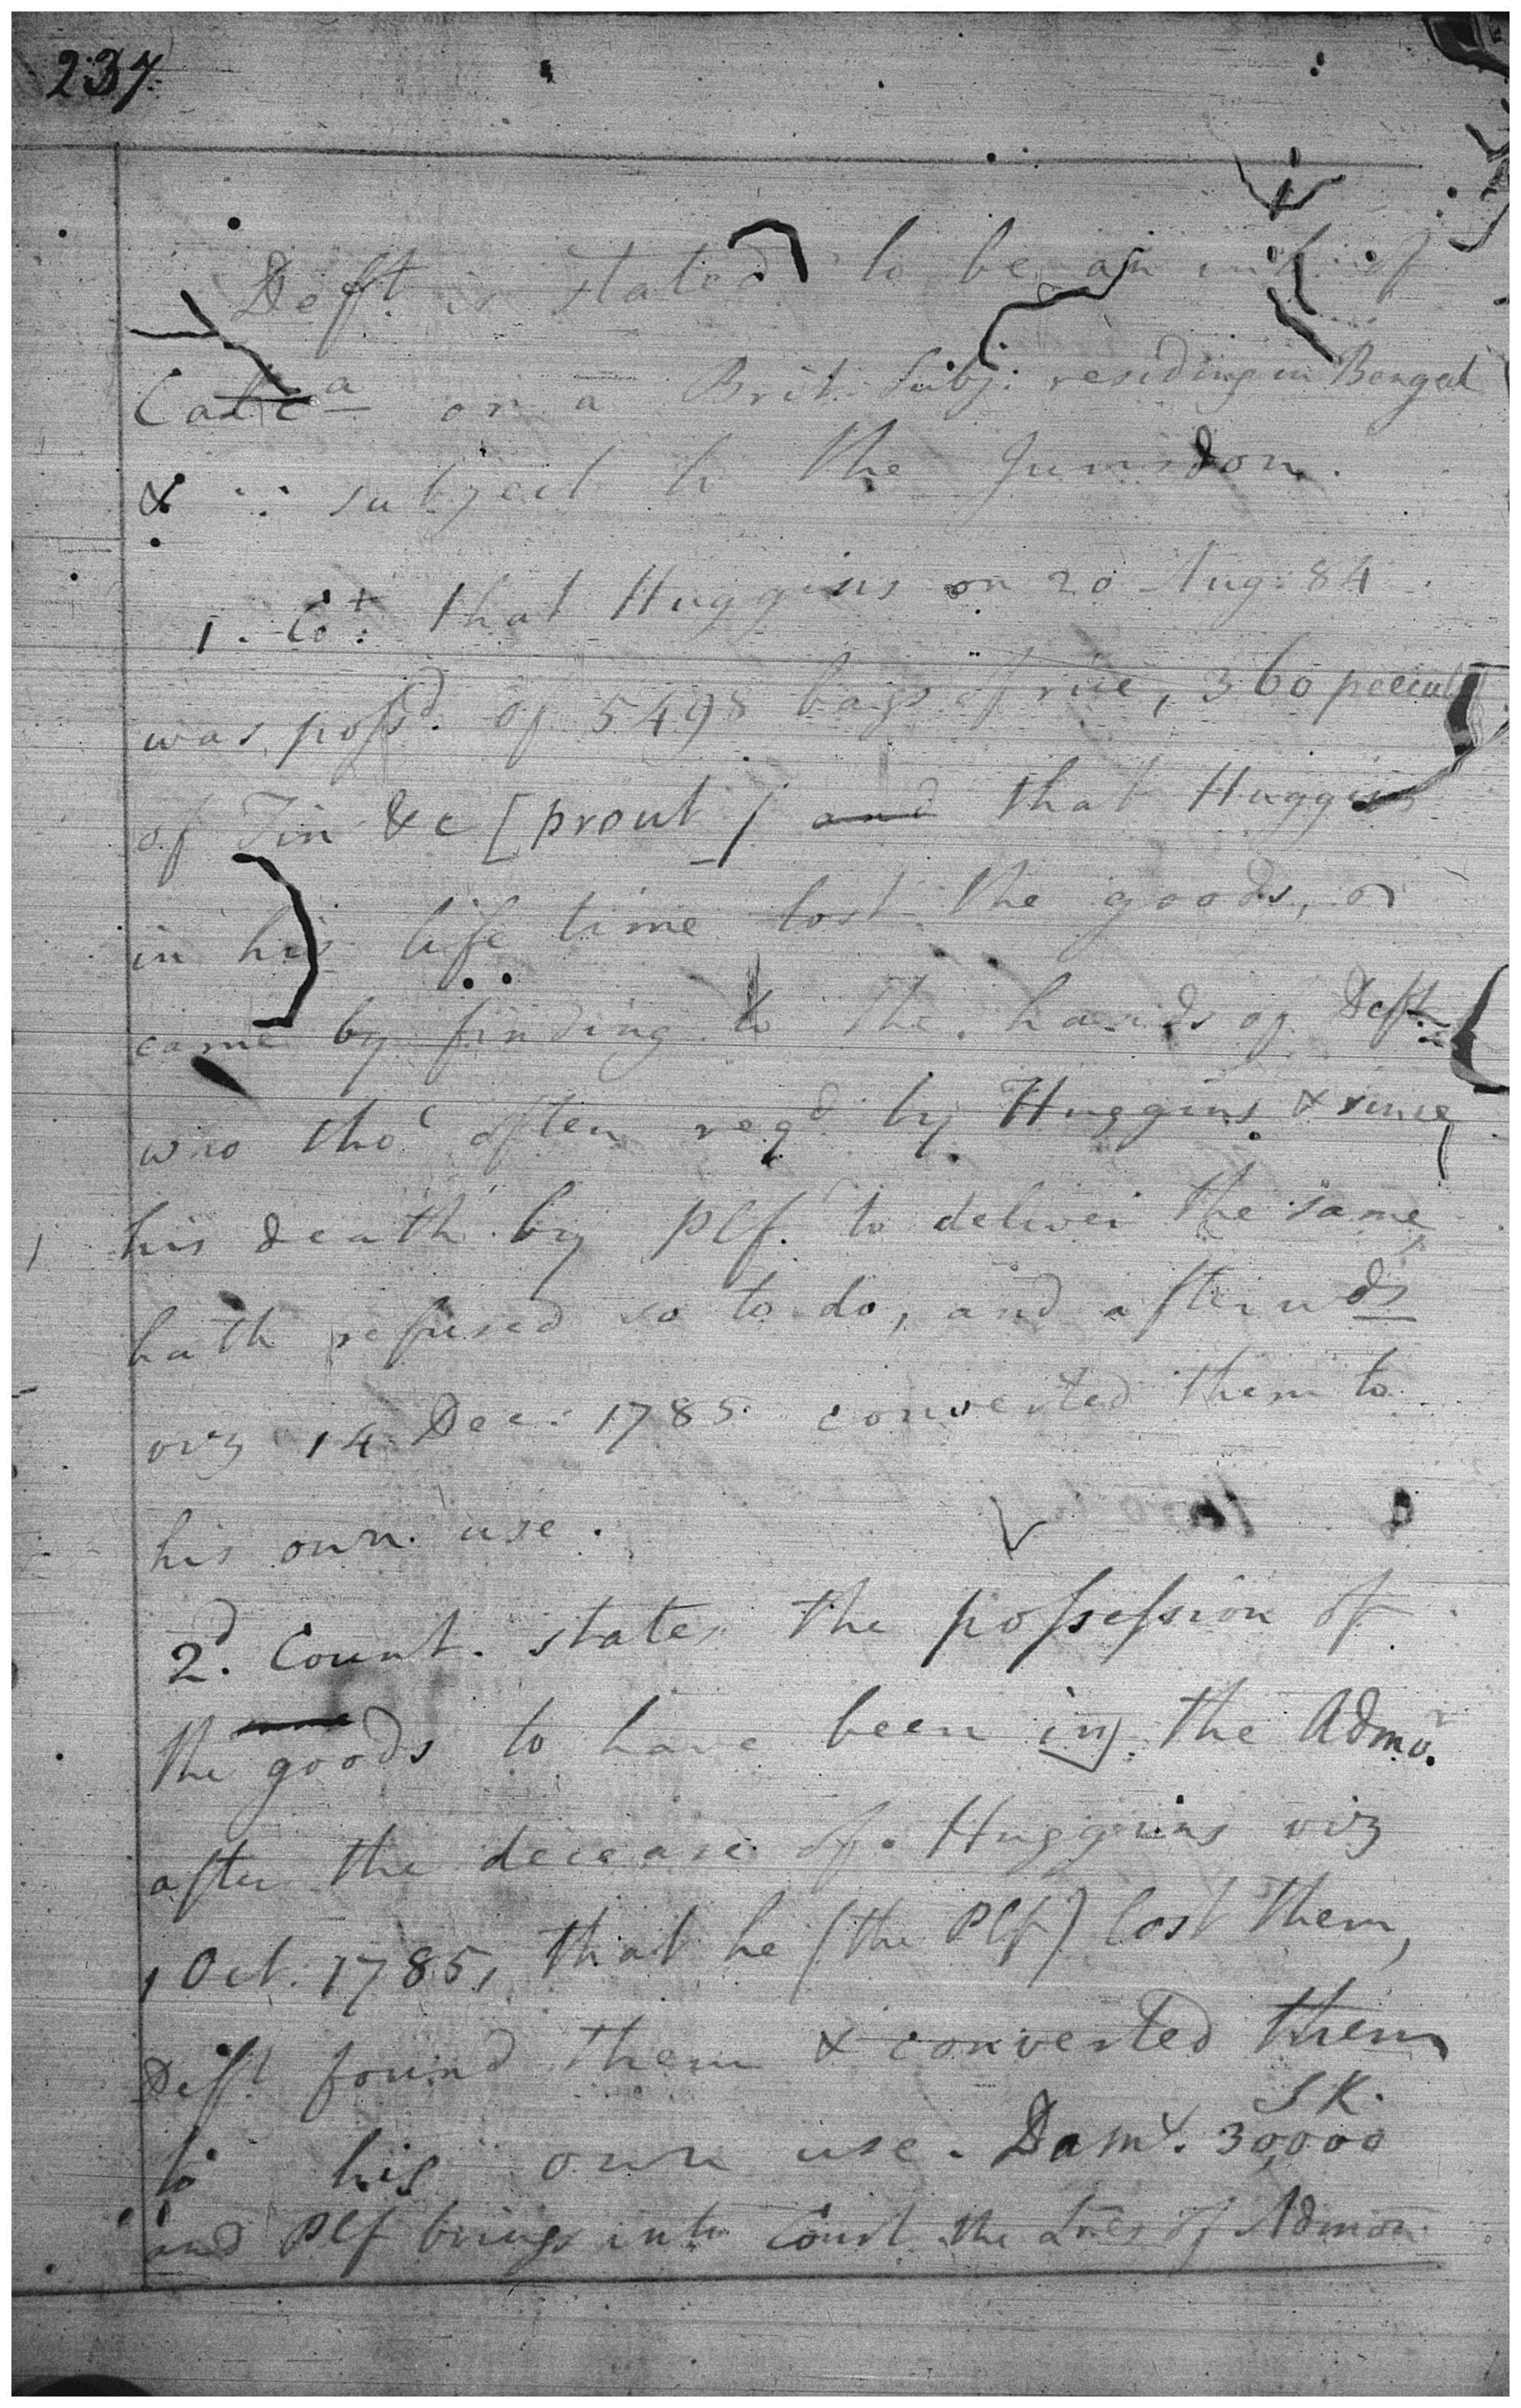 237
Deft. is stated to be an inh. of
Calca or a Brit. Subj. residing in Bengal
& ∴ subject to the Jurisdon.
1. Cot: that Huggins on 20 Aug: 84
was possd. of 5498 bags of rice, 360 peculs
of Tin &c [prout] and that Huggins
in his life time lost the goods, &
came by finding to the hands of Deft.
who tho' often reqd. by Huggins & since
his death by Plf. to deliver the same,
hath refused so to do, and afterwds
viz 14 Dec: 1785 converted them to
his own use.
2d. Count. states the possession of
the goods to have been in the Admor.
after the decease of Huggins viz
1 Oct. 1785, that he (the Plf) lost them,
Deft found them & converted them
to his own use. Dams. 30,000 SR.
and Plf brings into Court the Lres of Admon